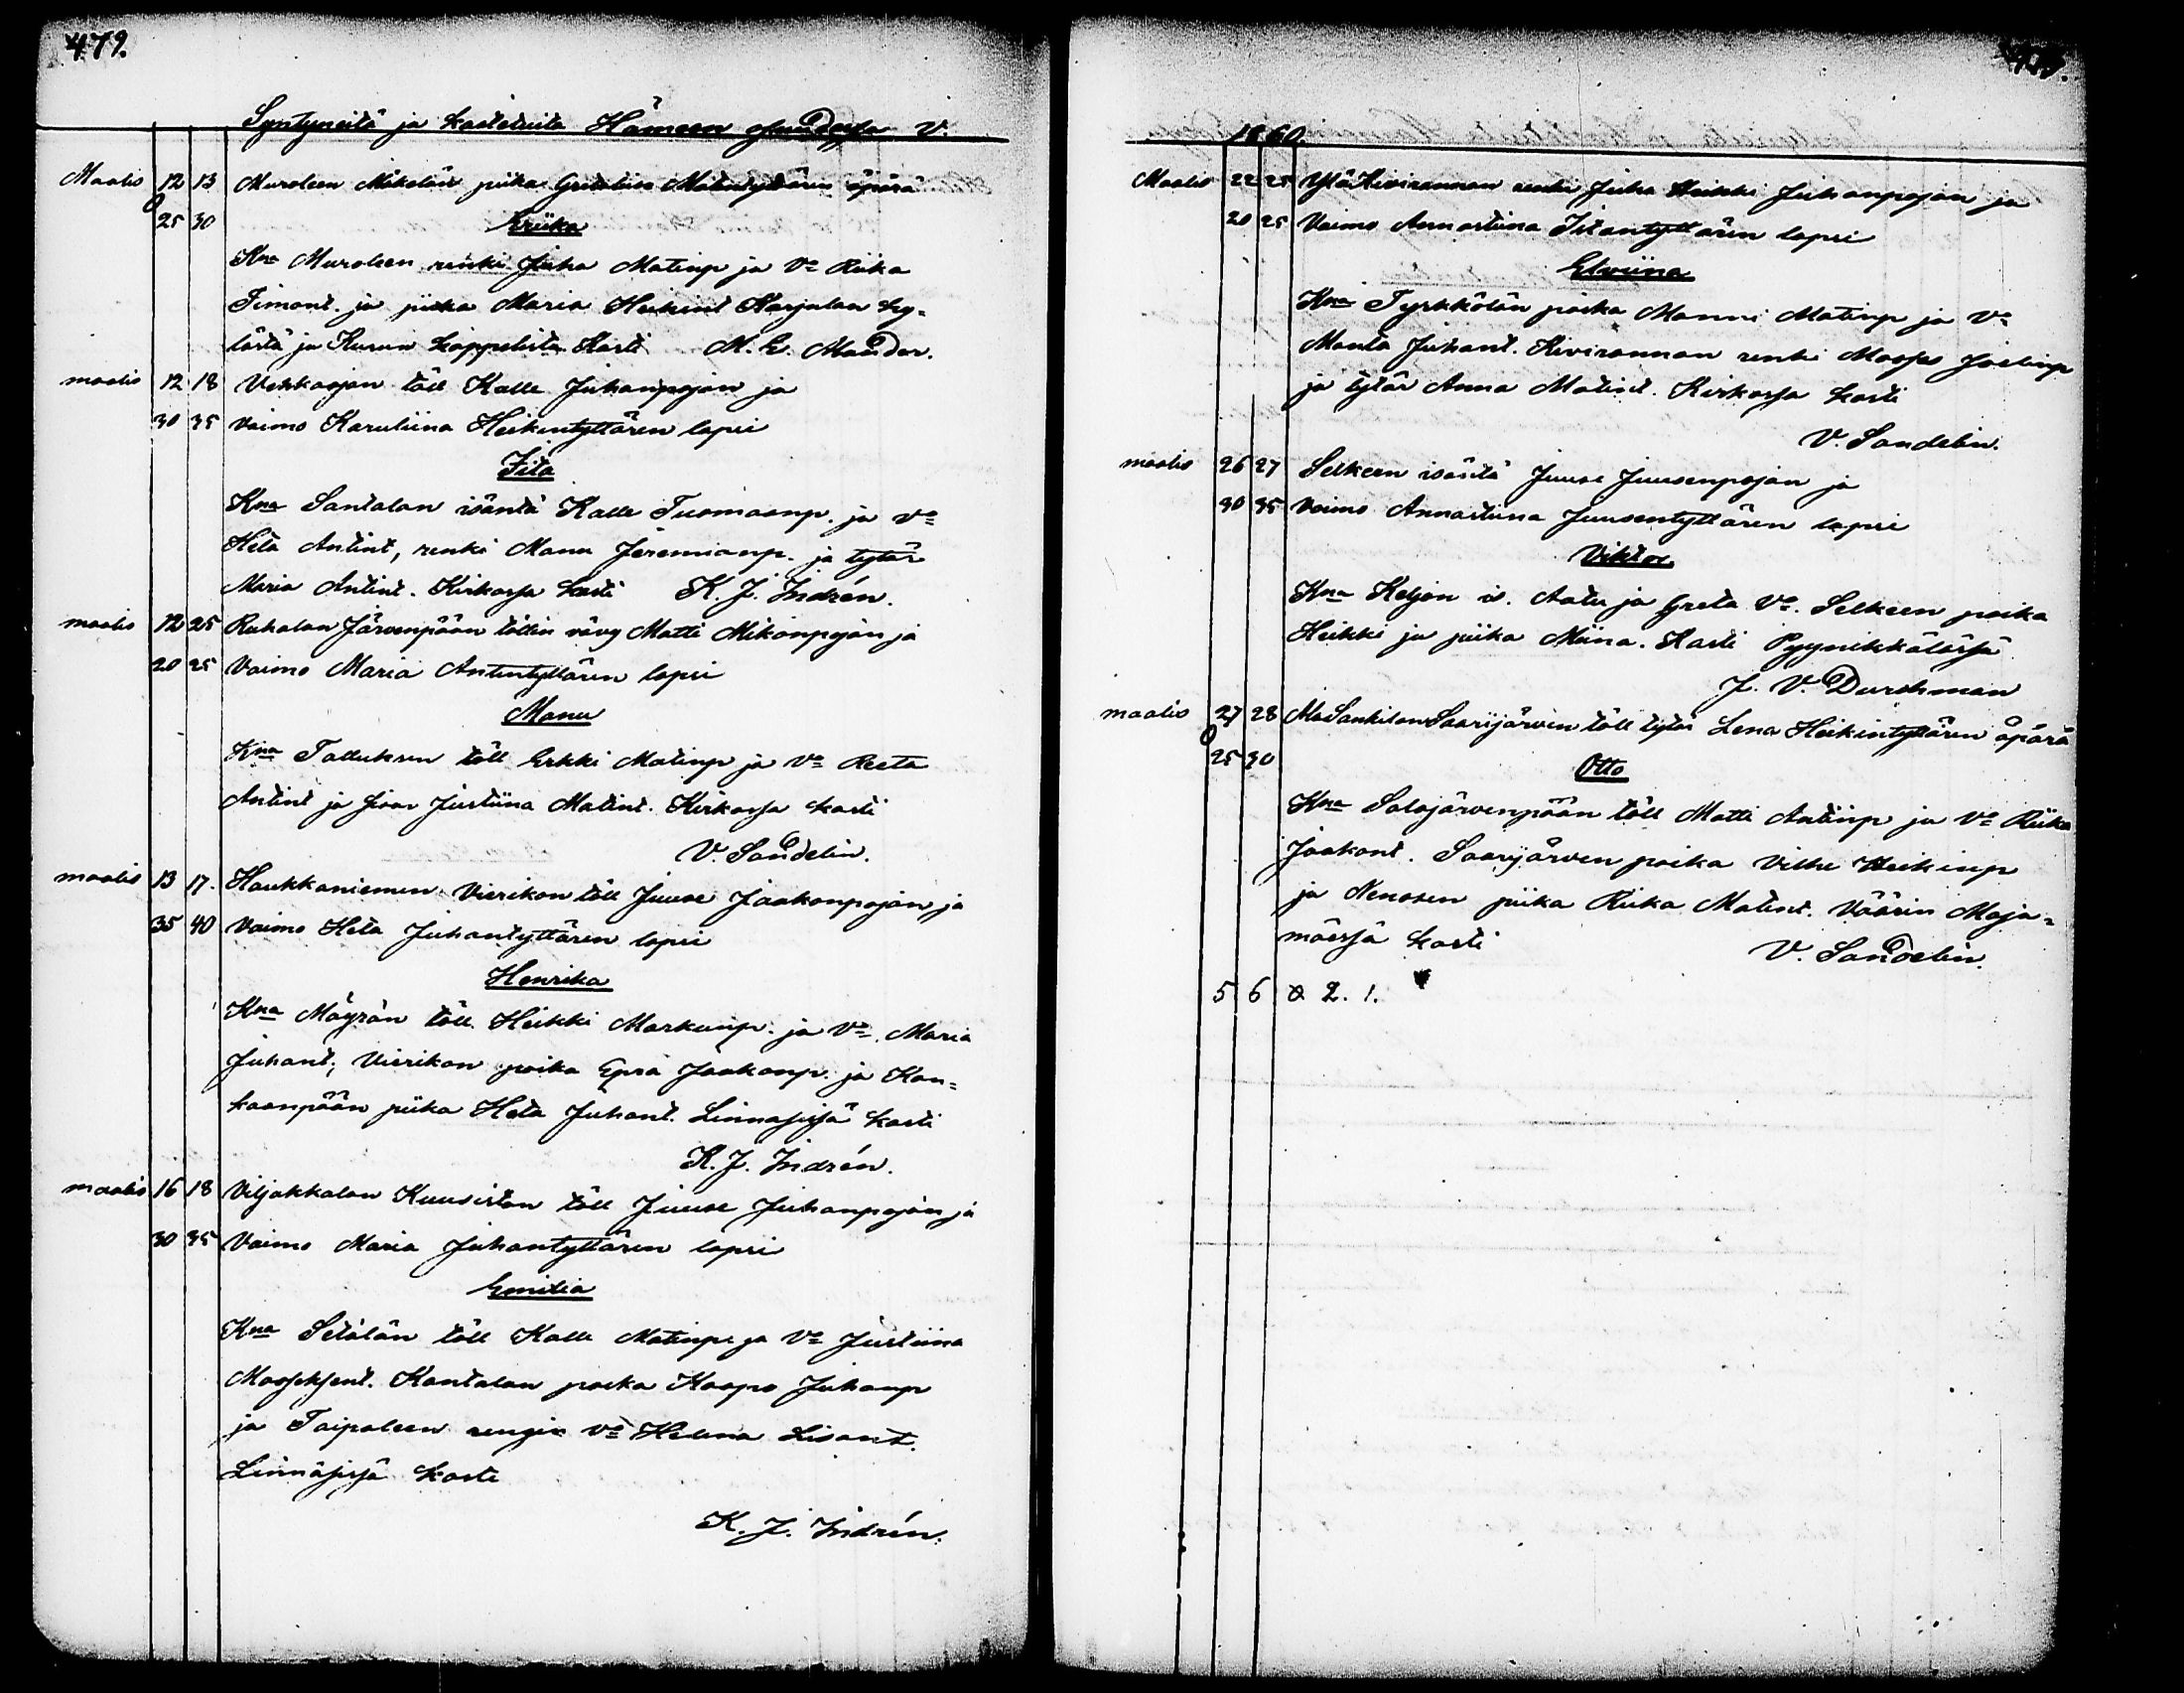 479.
Syntyneitä ja kastetuita Hämeen V.
Maalis 12 13 Muroleen Mikolan piika Gretaliisa Matintyttären äpärä
0
25 30 Eriika
Kna Muroleen renki Juha Matinp ja Vo Riika
Simont. ja piika Maria Heikint Karjulan ky-
lästä ja Kurun kappelista Kasti M. E. Mander.
maalis 12 18 Vehkaojan töll Kalle Juhanpojan ja
30 35 Vaimo Karuliina Heikintyttären lapsi
Fita
Kna Santalan isäntä Kalle Tuomaanp. ja vo
Heta Antint, renki Manu Jeremianp. ja tytär
Maria Antint. Kirkossa kasti K. J. Indrén.
maalis 12 25 Ruhalan Järvenpään töllin vävy Matti Mikonpojan ja
20 25 Vaimo Maria Antintyttären lapsi
Manu
Kna Talluksen töll Erkki Matinp ja Vo Reeta
Antint ja Justiina Matint. Kirkossa kasti
V. Sandelin.
maalis 13 17. Haukkaniemen Vierikon töll Juuse Jaakonpojan ja
35 40 Vaimo Heta Juhantyttären lapsi
Henrika
Kna Mäyrän töll. Heikki Markunp. ja Vo. Maria
Juhant; Vierikon poika Epra Jaakonp. ja Kan-
kaanpään piika Heta Juhant. Linnasissä kasti
K. J. Indrén.
maalis 16 18 Viljakkalan Kuusiston töll Juuse Juhanpojan ja
30 35 Vaimo Maria Juhantyttären lapsi
Emilia
Kna Setälän töll Kalle Matinp. ja Vo Justiina
Mooseksent. Kantalan poika Kaapo Juhanp
ja Taipaleen rengin Vo Helena Lisant.
Linnasissä kasti
K. J. Indrén.
1860.
Maalis 22 25 Ylä Kivirannan renki Juha Heikki Juhanpojan ja
20 25 Vaimo Annastiina Iitantyttären lapsi
Elwiina
Kna Tyrkkölän poika Manni Matinp ja Vo
Manta Juhant. Kivirannan renki Moses Joelinp
ja tytär Anna Matint. Kirkossa kasti
V. Sandelin.
maalis 26 27 Selkeen isäntä Juuse Juusenpojan ja
30 35 Vaimo Annastiina Juusentyttären lapsi
Viktor
Kna Keljon is. Aatu ja Greta Vo. Selkeen poika
Heikki ja piika Miina. Kasti Pyynikkälässä
J. V. Durchman
maalis 27 28 Saarijärvin töll tytär Lena Heikintyttären äpärä
0
25 30 Otto
Kna Salojärvenpään töll Matti Antinp ja Vo Riika
Jaakont. Saarijärven poika Vilhe Heikinp
ja Nenosen piika Riika Matint. Väärin Maja-
mäessä kasti V. Sandelin.
5 6 & 2. 1.